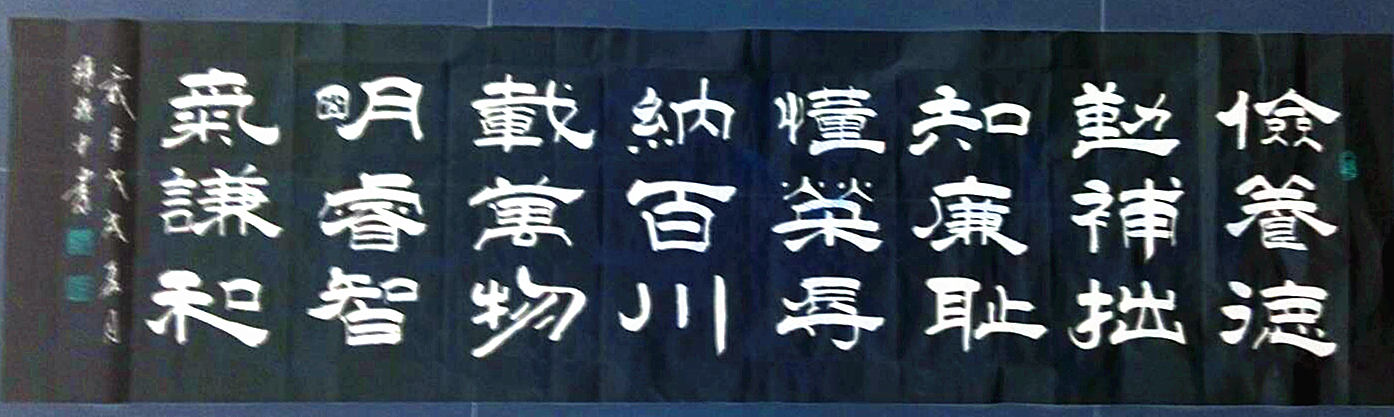 儉養德
勤補拙
知廉耻
懂榮辱
納百川
載萬物
明睿智
氣謙和
歲字戊戌夏月